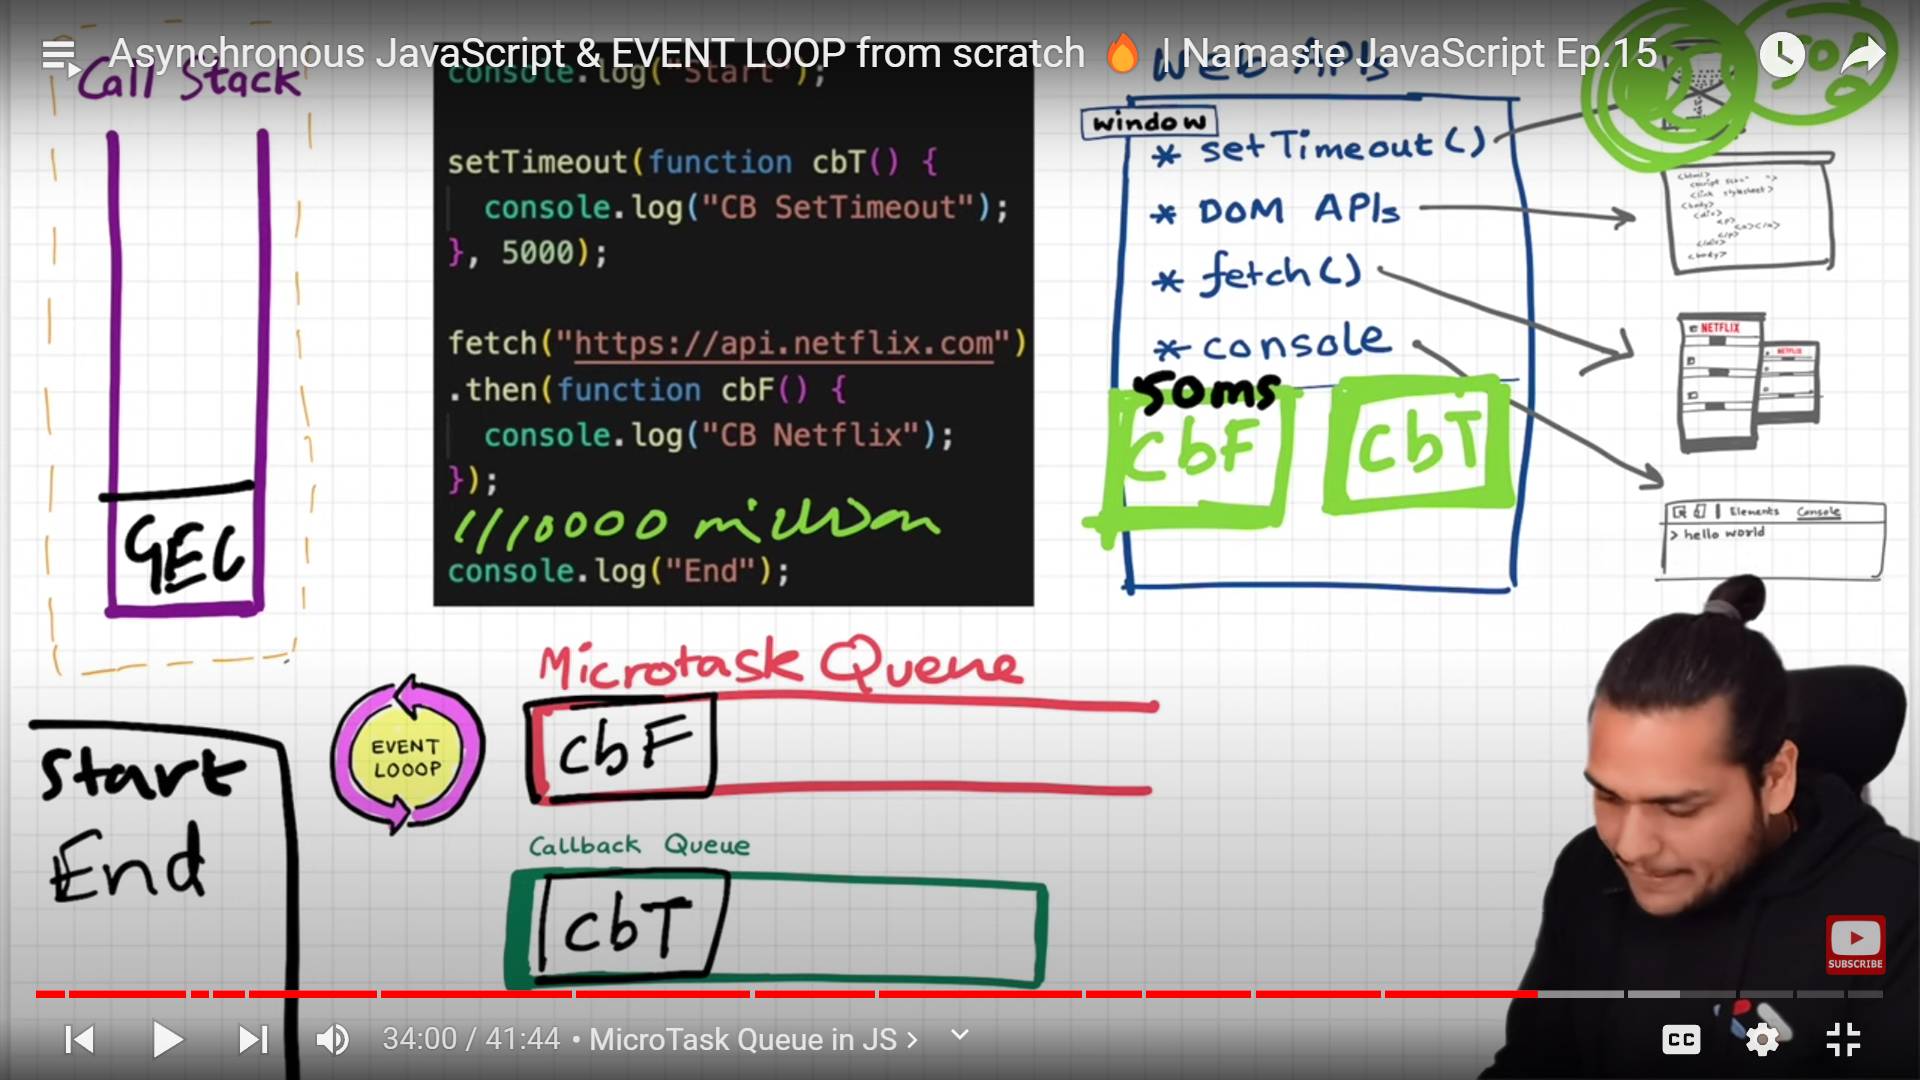 Asynchronous JavaScript & EVENT LOOP from scratch 🔥 | Namaste JavaScript Ep.15
Call Stack
GEC
console.log("Start");
setTimeout(function cbT() {
console.log("CB SetTimeout");
}, 5000);
fetch("https://api.netflix.com")
.then(function cbF() {
console.log("CB Netflix");
});
// 10000 million
console.log("End");
Web APIs
window
* setTimeout()
* DOM APIs
* fetch()
* console
50ms
cbF
cbT
<body>
<div>
</div>
<body>
NETFLIX
NETFLIX
Elements Console
> hello world
Microtask Queue
cbF
EVENT
LOOOP
Callback Queue
cbT
Start
End
SUBSCRIBE
34:00 / 41:44 • MicroTask Queue in JS >
CC